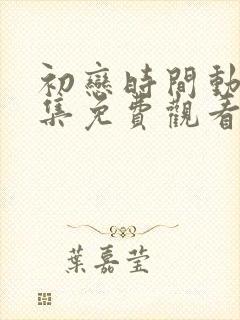 初戀時間動
集免費觀看
葉嘉莹